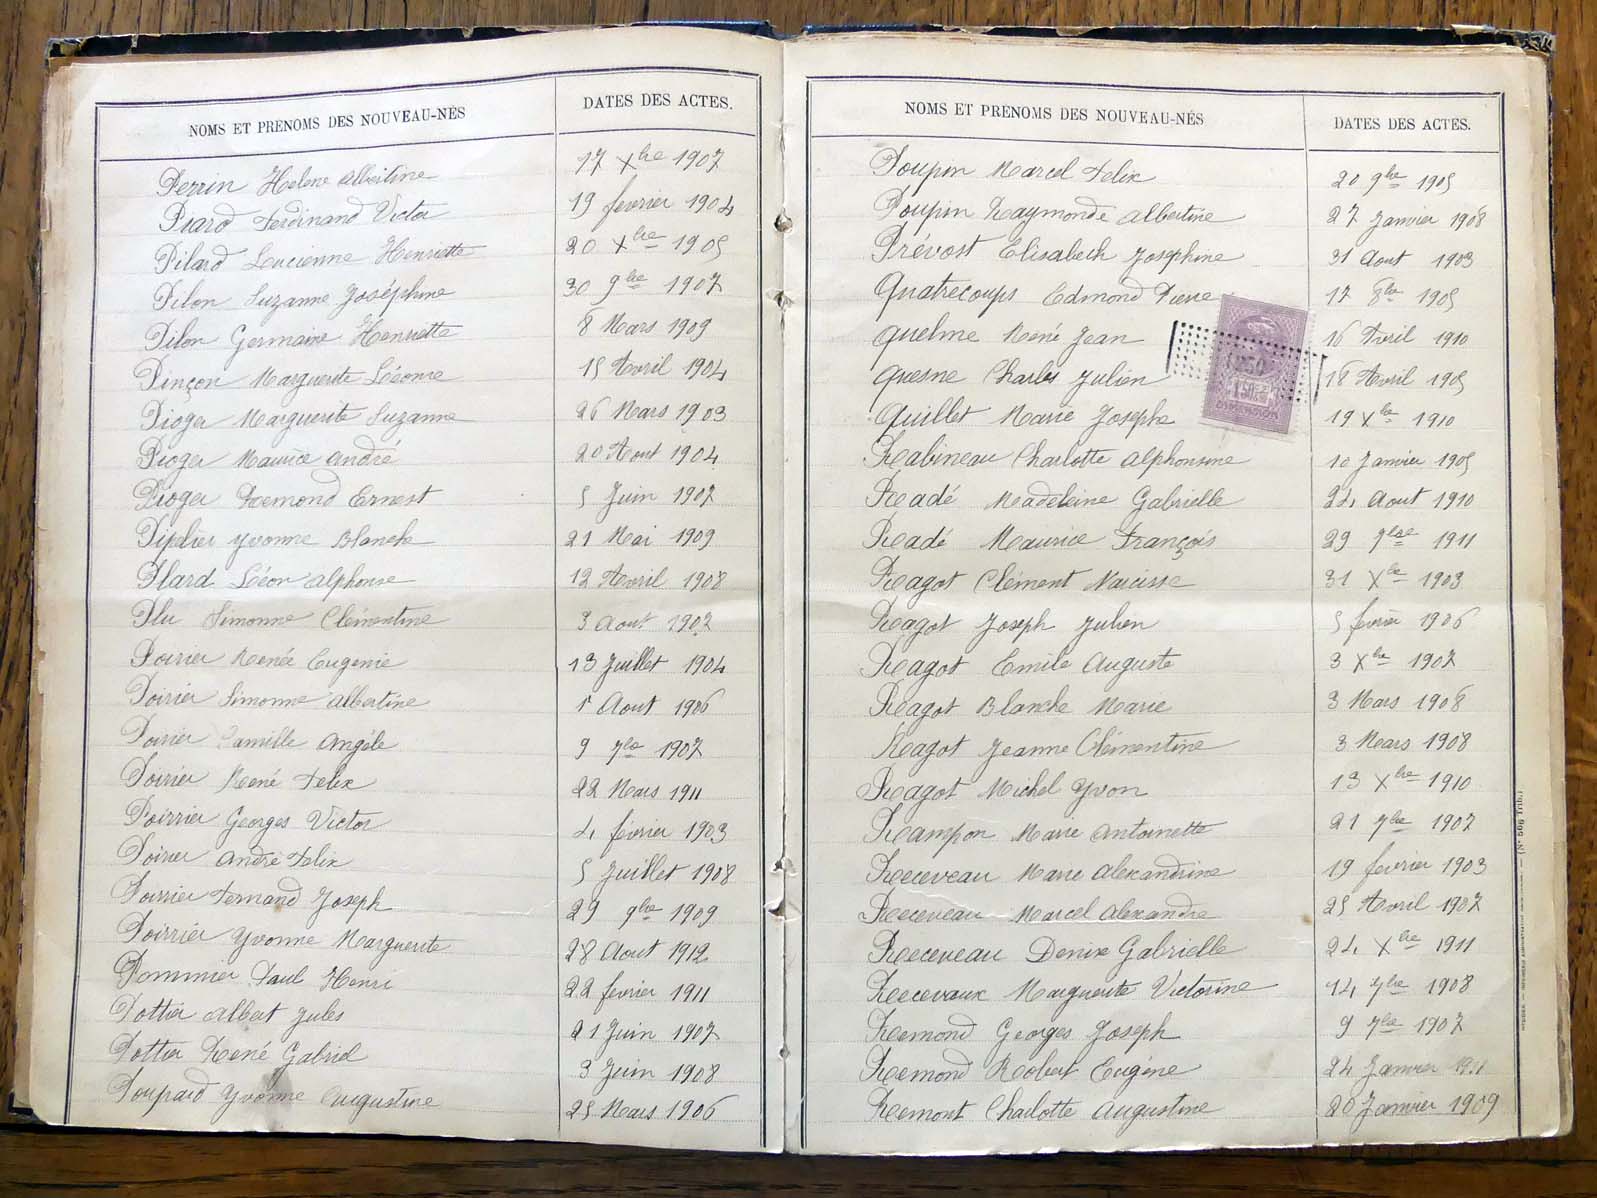 NOMS ET PRÉNOMS DES NOUVEAU-NÉS DATES DES ACTES.
Perrin Helene Albertine 17 Xbre 1907
Piard Ferdinand Victor 19 février 1904
Pilard Lucienne Henriette 20 Xbre 1905
Pilon Suzanne Joséphine 30 9bre 1907
Pilon Germaine Henriette 8 Mars 1909
Pinçon Marguerite Léonie 15 Avril 1904
Pioger Marguerite Suzanne 26 Mars 1903
Pioger Maurice André 20 Aout 1904
Pioger Remond Ernest 5 Juin 1907
Piplier Yvonne Blanche 21 Mai 1909
Plard Léon Alphonse 12 Avril 1908
Plu Simonne Clémentine 3 Aout 1907
Poirier Renée Eugenie 13 Juillet 1904
Poirier Simonne Albertine 1 Aout 1906
Poirier Camille Angèle 9 7bre 1907
Poirier René Felix 22 Mars 1911
Poirrier Georges Victor 4 février 1903
Poirier André Felix 5 Juillet 1908
Poirrier Fernand Joseph 29 9bre 1909
Poirrier Yvonne Marguerite 28 Aout 1912
Pommier Paul Henri 22 février 1911
Pottier Albert Jules 21 Juin 1907
Pottier René Gabriel 3 Juin 1908
Poupard Yvonne Augustine 25 Mars 1906
NOMS ET PRÉNOMS DES NOUVEAU-NÉS DATES DES ACTES.
Poupin Marcel Felix 20 9bre 1905
Poupin Raymonde Albertine 27 Janvier 1908
Prévost Elisabeth Josephine 31 Aout 1903
Quatrecoups Edmond Pierre 17 8bre 1905
Quelme René Jean 16 Avril 1910
Quesne Charles Julien 18 Avril 1905
Quillet Marie Josephe 19 Xbre 1910
Rabineau Charlotte Alphonsine 10 Janvier 1905
Radé Madeleine Gabrielle 24 Aout 1910
Radé Maurice François 29 9bre 1911
Ragot Clément Narcisse 31 Xbre 1903
Ragot Joseph Julien 5 février 1906
Ragot Emile Auguste 3 Xbre 1907
Ragot Blanche Marie 3 Mars 1908
Ragot Jeanne Clémentine 3 Mars 1908
Ragot Michel Yvon 13 Xbre 1910
Rampon Marie Antoinette 21 7bre 1907
Receveau Marie Alexandrine 19 février 1903
Receveau Marcel Alexandre 25 Avril 1907
Receveau Denise Gabrielle 24 Xbre 1911
Recevaux Marguerite Victorine 14 7bre 1908
Remond Georges Joseph 9 7bre 1907
Remond Robert Eugène 24 Janvier
Remont Charlotte Augustine 20 Janvier 1909
DIMENSION